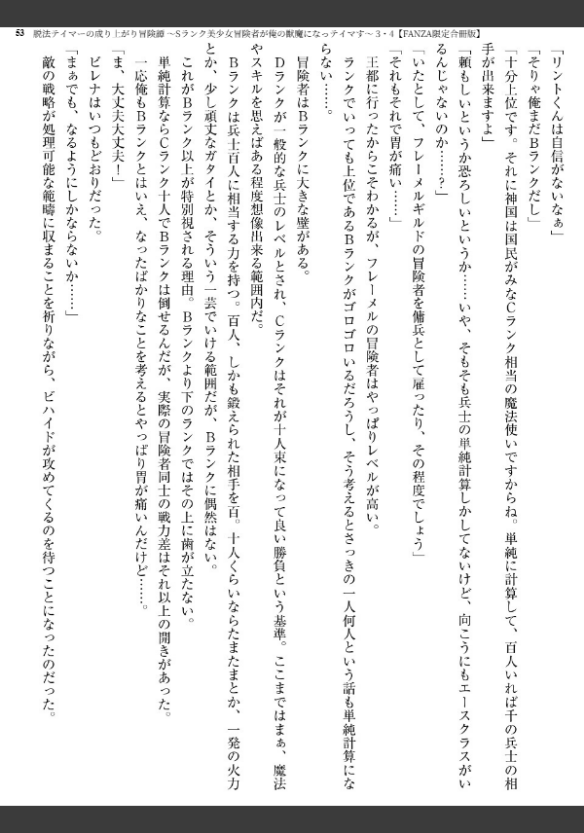 53 脱法テイマーの成り上がり冒険譚 ～Sランク美少女冒険者が俺の獣魔になっテイマす～ 3・4【FANZA限定合冊版】
「リントくんは自信がないなぁ」
「そりゃ俺まだBランクだし」
「十分上位です。それに神国は国民がみなCランク相当の魔法使いですからね。単純に計算して、百人いれば千の兵士の相
手が出来ますよ」
「頼もしいというか恐ろしいというか……いや、そもそも兵士の単純計算しかしてないけど、向こうにもエースクラスがい
るんじゃないのか……？」
「いたとして、フレーメルギルドの冒険者を傭兵として雇ったり、その程度でしょう」
「それもそれで胃が痛い……」
王都に行ったからこそわかるが、フレーメルの冒険者はやっぱりレベルが高い。
ランクでいっても上位であるBランクがゴロゴロいるだろうし、そう考えるとさっきの一人何人という話も単純計算にな
らない……。
冒険者はBランクに大きな壁がある。
Dランクが一般的な兵士のレベルとされ、Cランクはそれが十人束になって良い勝負という基準。ここまではまぁ、魔法
やスキルを思えばある程度想像出来る範囲内だ。
Bランクは兵士百人に相当する力を持つ。百人、しかも鍛えられた相手を百。十人くらいならたまたまとか、一発の火力
とか、少し頑丈なガタイとか、そういう一芸でいける範囲だが、Bランクに偶然はない。
これがBランク以上が特別視される理由。Bランクより下のランクではその上に歯が立たない。
単純計算ならCランク十人でBランクは倒せるんだが、実際の冒険者同士の戦力差はそれ以上の開きがあった。
一応俺もBランクとはいえ、なったばかりなことを考えるとやっぱり胃が痛いんだけど……。
「ま、大丈夫大丈夫！」
ビレナはいつもどおりだった。
「まぁでも、なるようにしかならないか……」
敵の戦略が処理可能な範疇に収まることを祈りながら、ビハイドが攻めてくるのを待つことになったのだった。